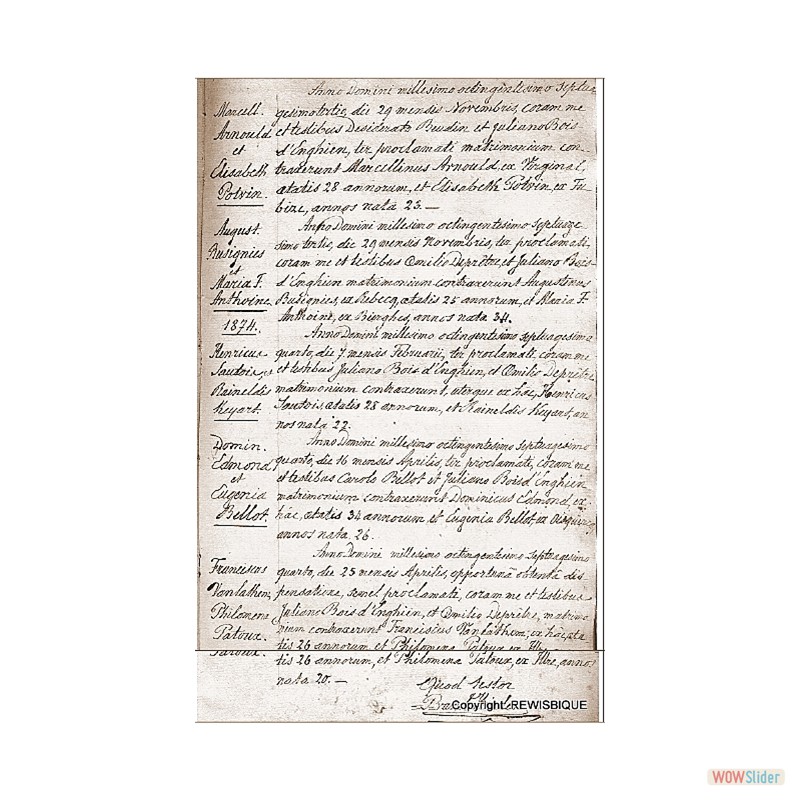 Anno Domini millesimo octingentesimo septua-
Marcell. gesimo tertio, die 29 mensis Novembris, coram me
Arnould et testibus Desiderato Beudin et Juliano Bois
et d'Enghien, ter proclamati matrimonium con-
Elisabeth traxerunt Marcellinus Arnould, ex Virginal,
Potvin. ætatis 28 annorum, et Elisabeth Potvin, ex Tu-
bize, annos nata 23. —
August. Anno Domini millesimo octingentesimo septuage-
Rusignies simo tertio, die 29 mensis Novembris, ter proclamati,
et coram me et testibus Emilio Deprêtre, et Juliano Bois
Maria F. d'Enghien matrimonium contraxerunt Augustinus
Anthoine. Busignies, ex Rebecq, ætatis 25 annorum, et Maria F.
Anthoine, ex Bierghes, annos nata 34.
1874. Anno Domini millesimo octingentesimo septuagesimo
Henricus quarto, die 7 mensis Februarii, ter proclamati, coram me
et testibus Juliano Bois d'Enghien, et Emilio Deprêtre,
Raineldis matrimonium contraxerunt, uterque ex hac, Henricus
Keyart. ætatis 28 annorum, et Raineldis Keyart, an-
nos nata 22.
Domin. Anno Domini millesimo octingentesimo septuagesimo
Edmond quarto, die 16 mensis Aprilis, ter proclamati, coram me
et et testibus Carolo Bellot et Juliano Bois d'Enghien
Eugenia matrimonium contraxerunt Dominicus Edmond, ex
Bellot. hac, ætatis 34 annorum et Eugenia Bellot ex
annos nata 26.
Anno Domini millesimo octingentesimo septuagesimo
Franciscus quarto, die 25 mensis Aprilis, opportunâ obtentâ dis-
Vanlathem, pensatione, semel proclamati, coram me et testibus
Philomena Juliano Bois d'Enghien, et Emilio Deprêtre, matrimo-
Patoux. nium contraxerunt Franciscus Vanlathem, ex hac, æta-
tis 26 annorum, et Philomena Patoux, ex Ittre,
Patoux. tis 26 annorum, et Philomena Patoux, ex Ittre, annos
nata 20. —
Quod testor
Copyright REWISBIQUE
WOWSlider